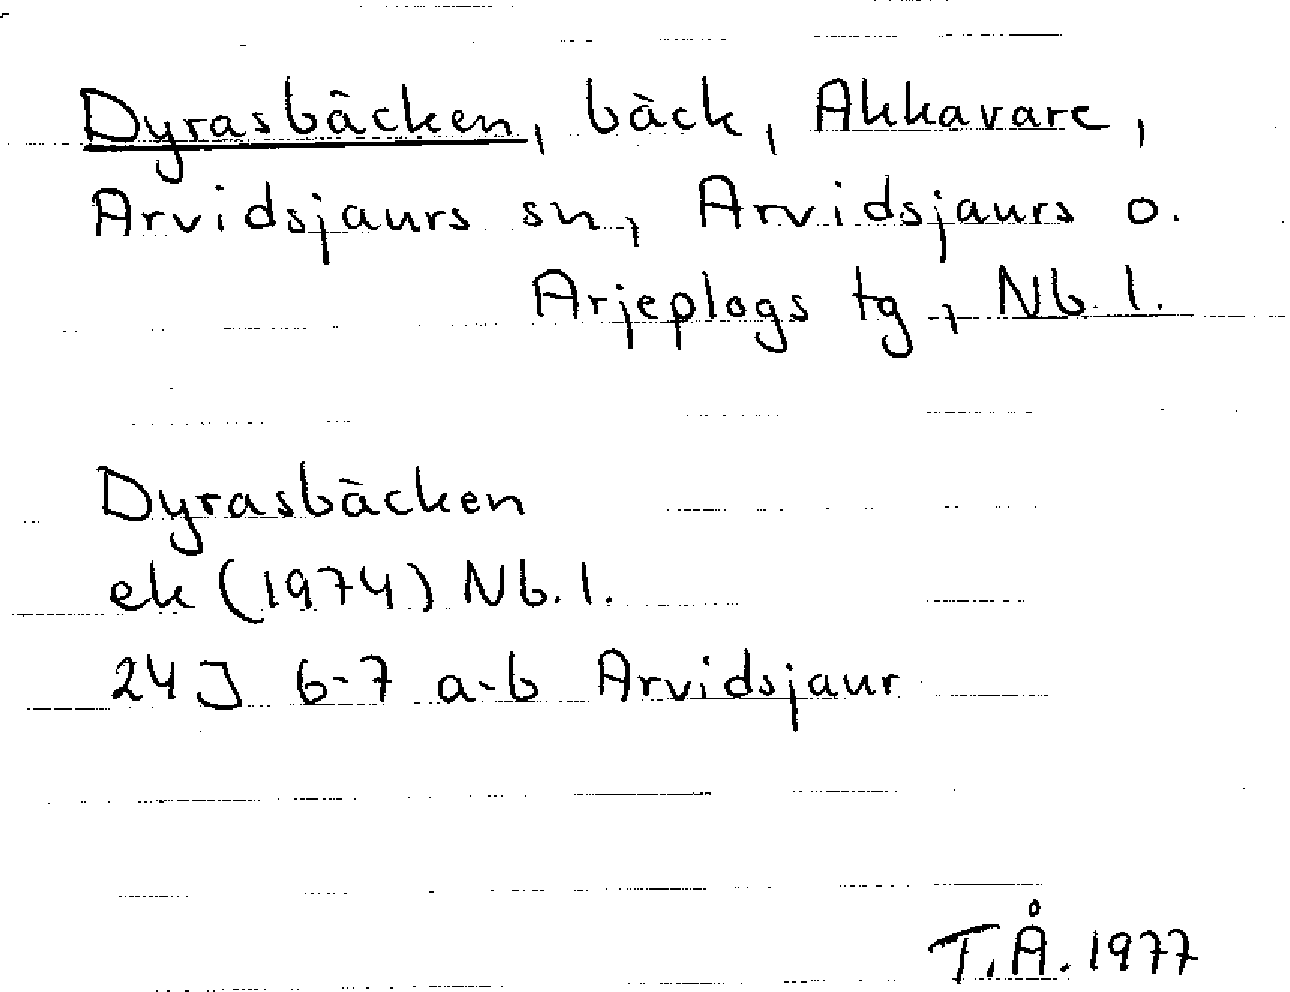 Dyrasbäcken, bäck, Akkavare,
Arvidsjaurs sn, Arvidsjaurs o.
Arjeplogs tg, Nb. l.
Dyrasbäcken
ek (1974) Nb. l.
24J 6-7 a-b Arvidsjaur
T.Å. 1977